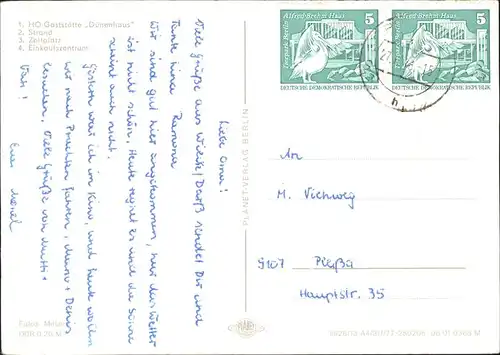 1. HO Gaststätte „Dünenhaus“
2. Strand
3. Zeltplatz
4. Einkaufszentrum
Liebe Oma!
Viele Grüße aus Wieck/Darß sendet Dir und
Tante Irma Ramona
Wir sind gut hier angekommen, nur das Wetter
ist nicht schön. Heute regnet es und die Sonne
scheint auch nicht.
Gestern war ich im Kino, und heute wollen
wir nach Prerow fahren,
besuchen. Viele Grüße von Mutti +
Vati!
Eure
PLANET-VERLAG BERLIN
Alfred-Brehm-Haus
5
Tierpark Berlin
DEUTSCHE DEMOKRATISCHE REPUBLIK
Alfred-Brehm-Haus
5
DEUTSCHE DEMOKRATISCHE REPUBLIK
An
M. Viehweg
9107 Pleißa
Hauptstr. 35